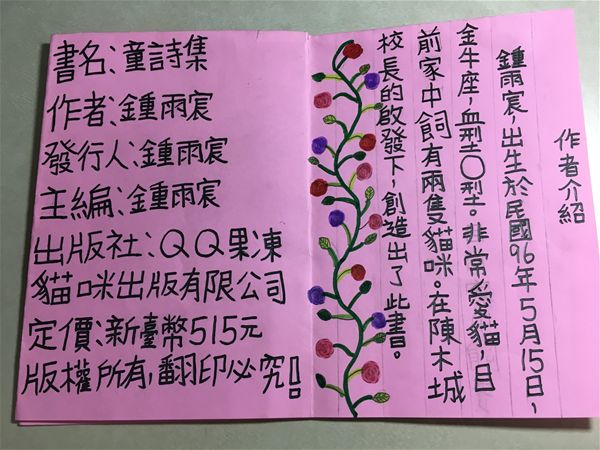 書名:童詩集
作者:鍾雨宸
發行人:鍾雨宸
主編:鍾雨宸
出版社:QQ果凍
貓咪出版有限公司
定價:新臺幣515元
版權所有,翻印必究!
作者介紹
鍾雨宸,出生於民國96年5月15日,
金牛座,血型O型。非常愛貓,目
前家中飼有兩隻貓咪。在陳木城
校長的啟發下,創造出了此書。